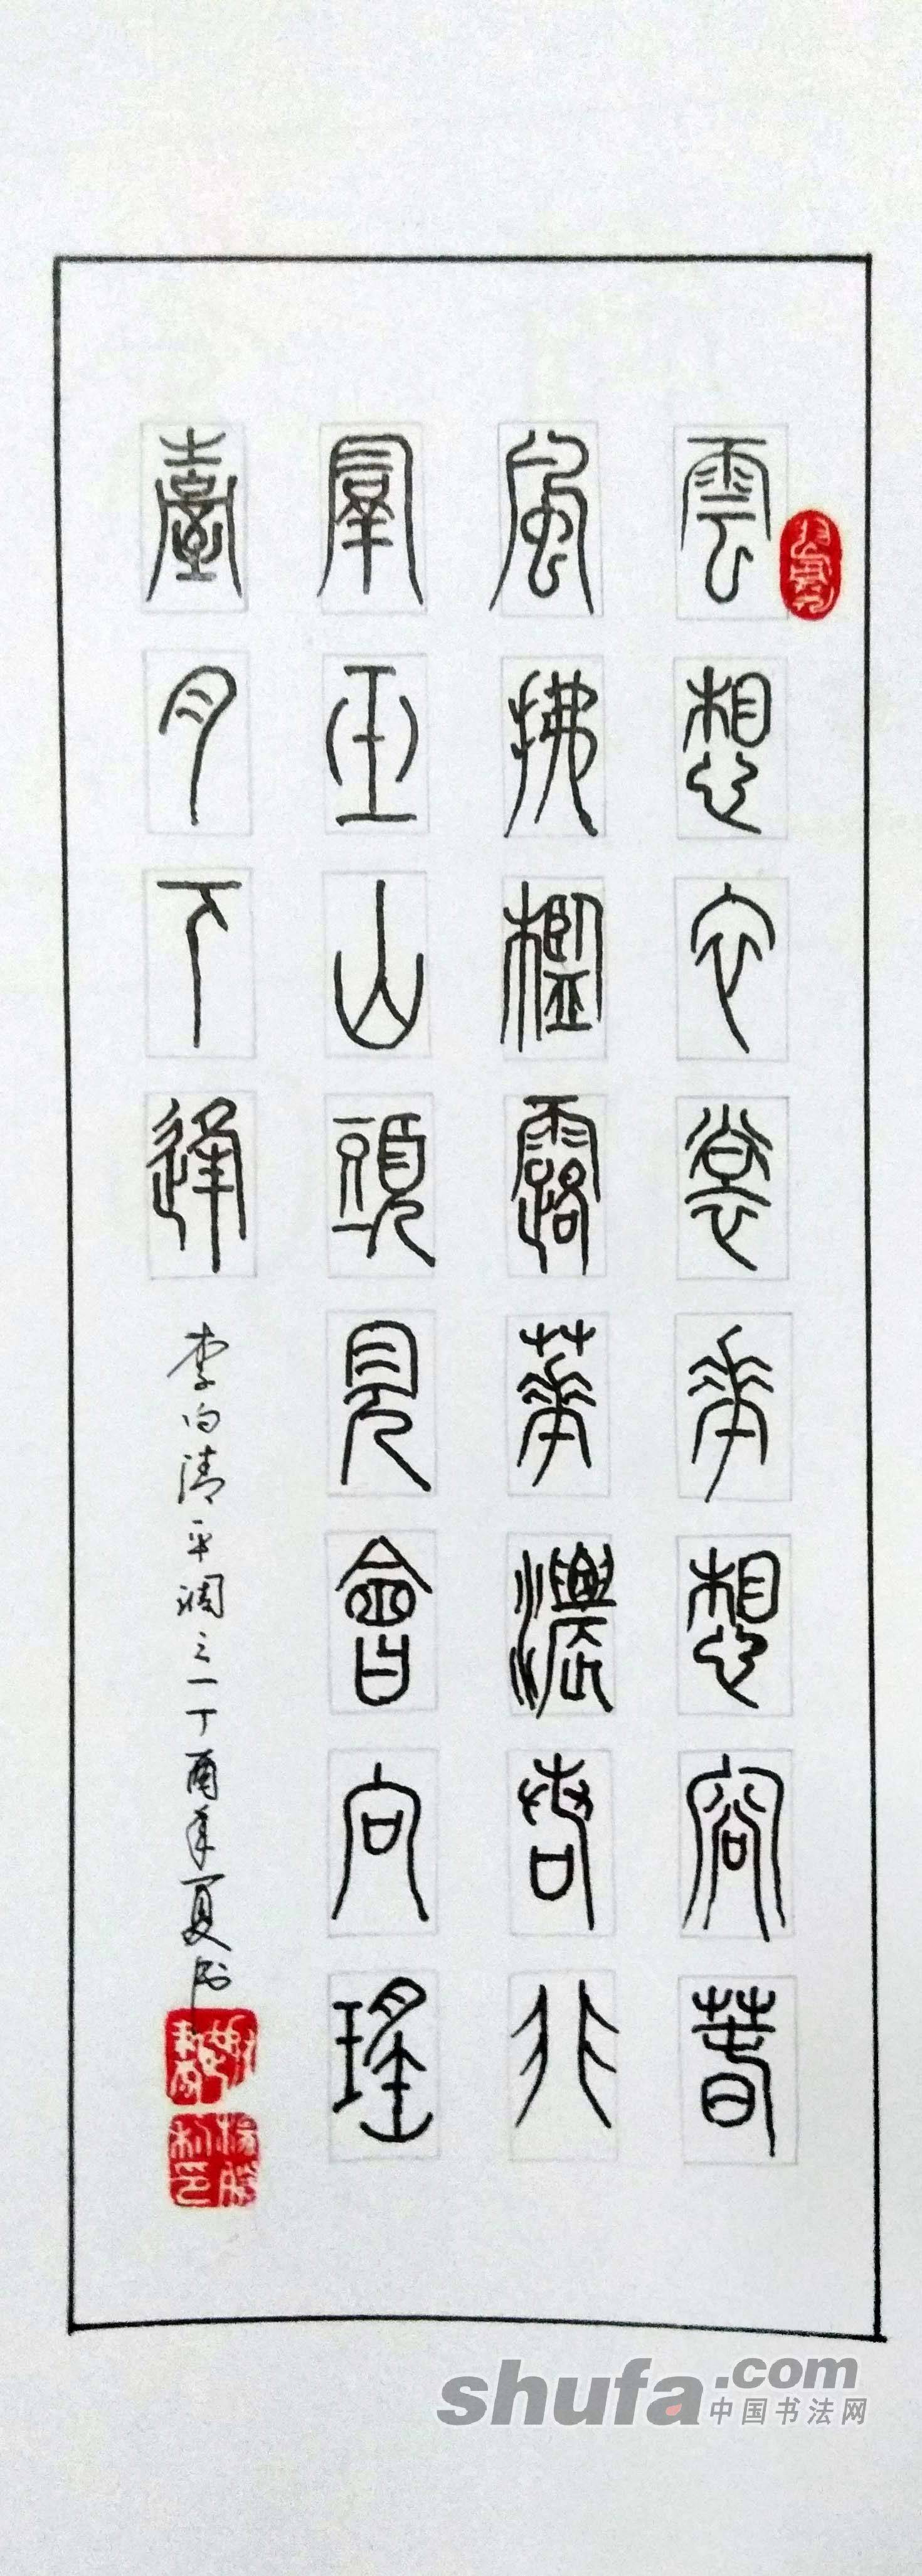 雲想衣裳花想容春
風拂檻露華濃若非
羣玉山頭見會向瑤
臺月下逢
李白清平调之一丁酉年夏书
shufa.com
中国书法网